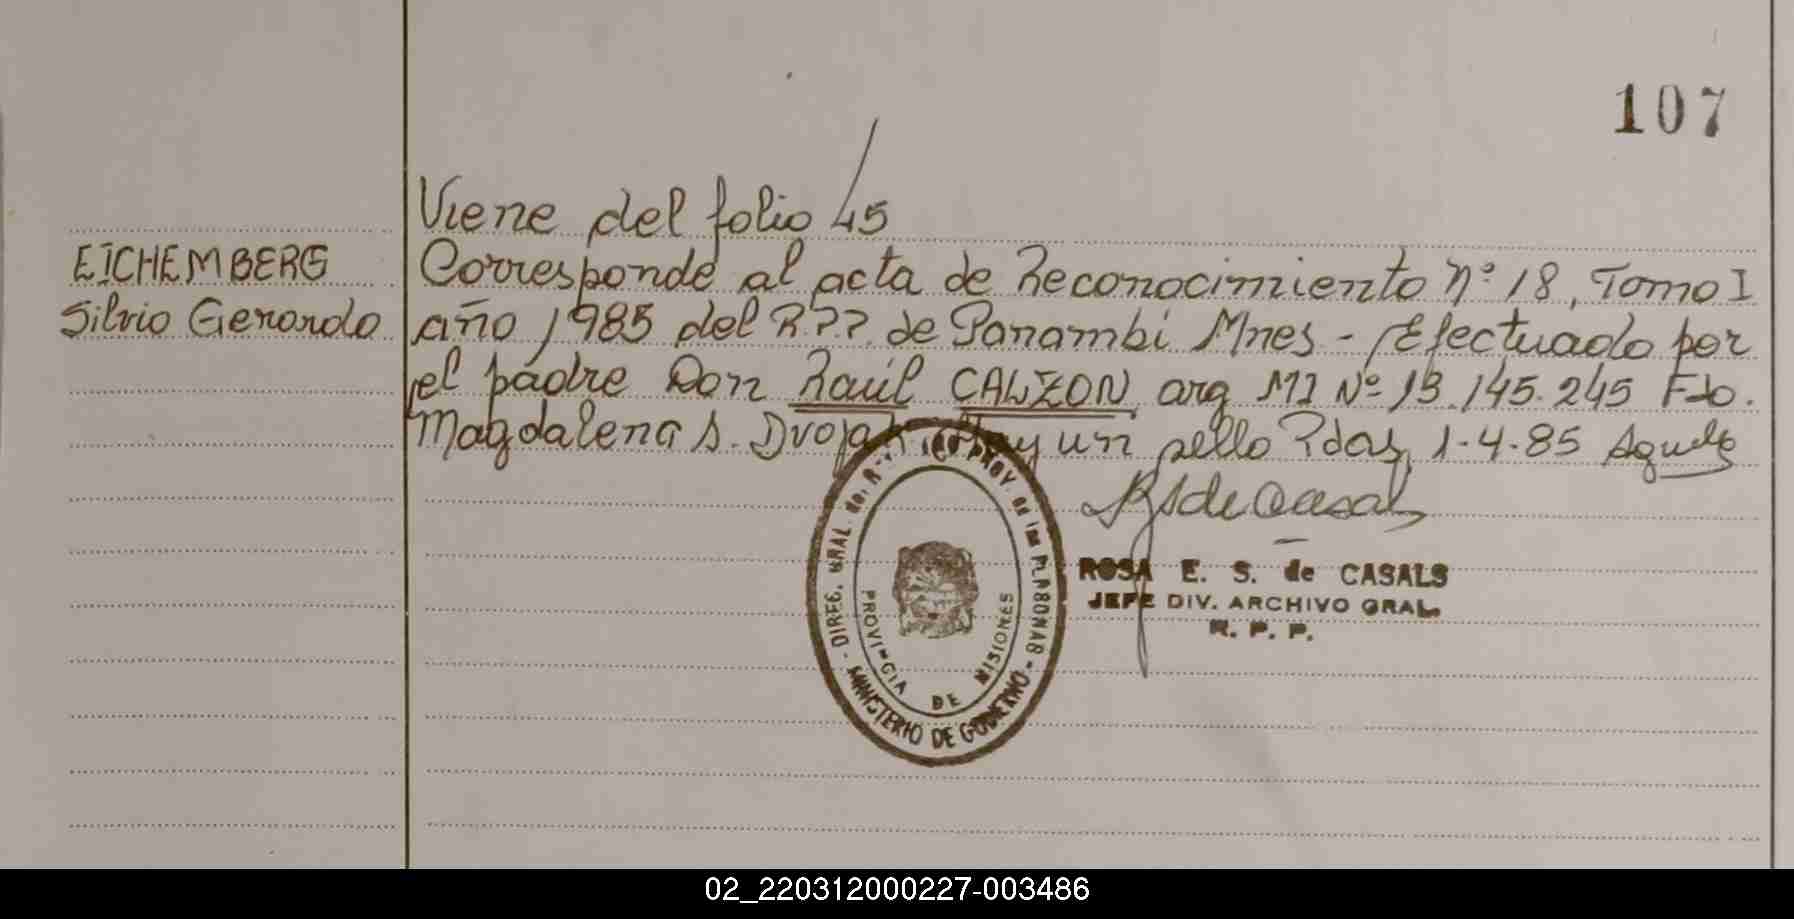 107
Viene del folio 45
EICHEMBERG
Silvio Gerardo
Corresponde al acta de Reconocimiento Nº 18, Tomo I
año 1985 del R.PP. de Panambi Mnes - Efectuado por
el padre Don Raúl CALZON arg MI Nº 13.145.245 Fdo.
Magdalena S. Dvojak Hay un sello Pdas, 1-4-85
DIREC. GRAL del PROV. de las PERSONAS
PROVINCIA DE MISIONES
MINISTERIO DE GOBIERNO
ROSA E. S. de CASALS
JEFE DIV. ARCHIVO GRAL.
R. P. P.
02_220312000227-003486